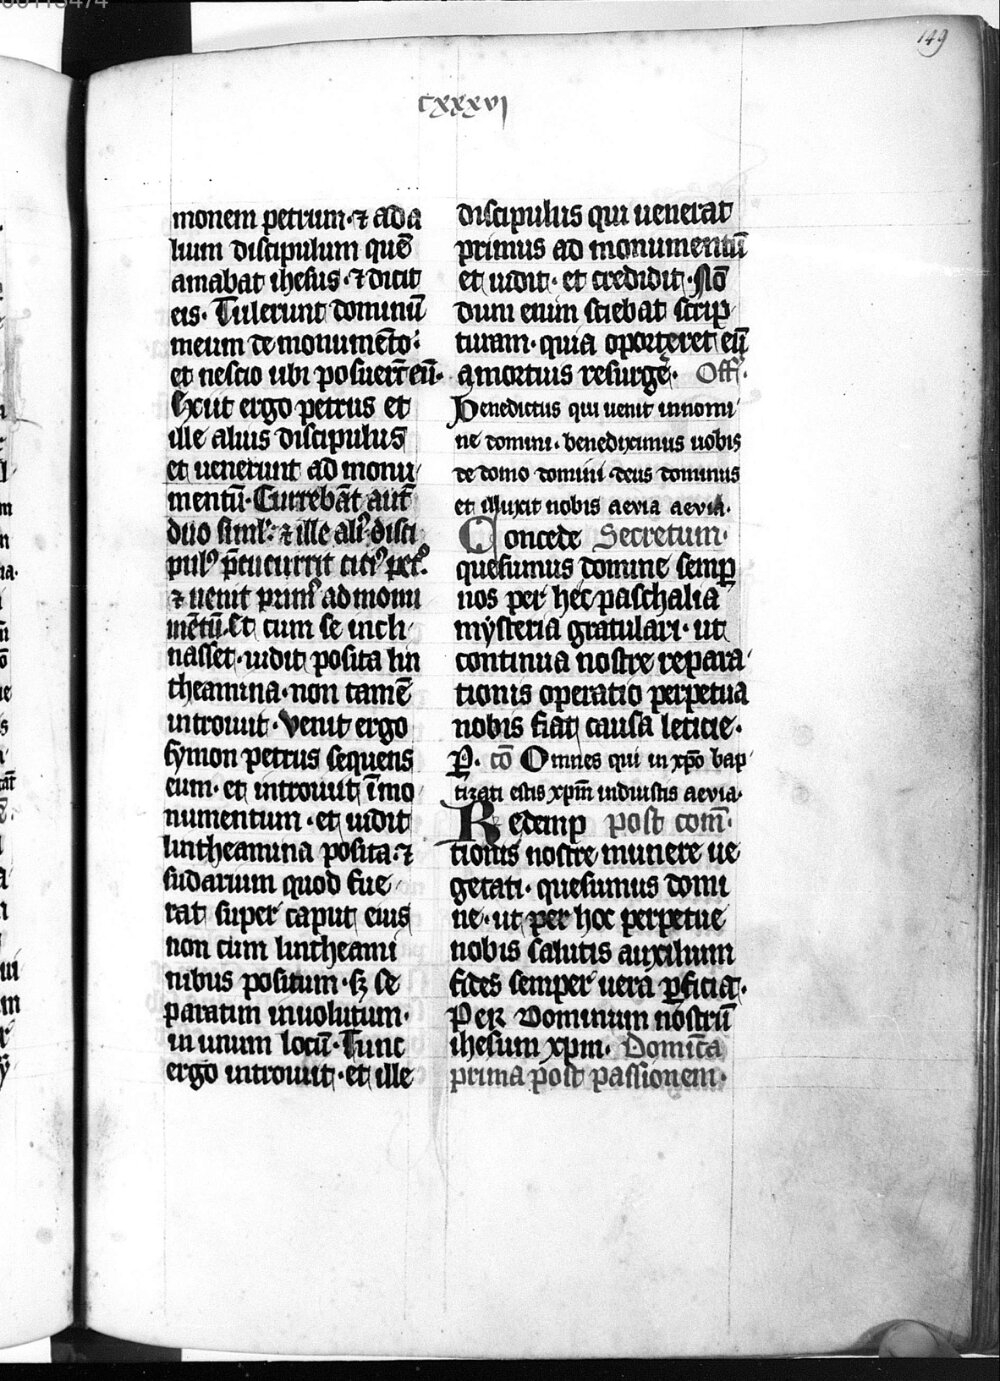 149
cxxxvi
monem petrum · ⁊ ad a
lium discipulum quē
amabat ihesus · ⁊ dicit
eis · Tulerunt dominū
meum de monumēto ·
et nescio ubi posuerūt eū ·
Exiit ergo petrus et
ille alius discipulus
et uenerunt ad monu
mentū · Currebāt autē
duo siml' · ⁊ ille aliꝰ disci
pulꝰ p̄cucurrit citiꝰ pet°
⁊ uenit primꝰ ad monu
mētū · Et cum se incli
nasset · uidit posita lin
theamina · non tamē
introiuit · Venit ergo
symon petrus sequens
eum · et introiuit ī mo
numentum · et uidit
lintheamina posita · ⁊
sudarium quod fue
rat super caput eius
non cum lintheami
nibus positum · sꝫ se
paratim inuolutum ·
in unum locū · Tunc
ergo introiuit · et ille
discipulus qui uenerat
primus ad monumentū
et uidit · et credidit · Nō
dum enim sciebat scrip
turam · quia oporteret eū
a mortuis resurgē · Off ·
Benedictus qui uenit in nomi
ne domini · benediximus uobis
de domo domini · deus dominus
et illuxit nobis aevia aevia ·
Concede Secretum ·
quesumus domine semꝑ
nos per hec paschalia
mysteria gratulari · ut
continua nostre repara
tionis operatio perpetua
nobis fiat causa leticie ·
P · cō Omnes qui in xp̄o bap
tizati estis xpm̄ induistis aevia ·
Redemp post com̄ ·
tionis nostre munere ue
getati · quesumus domi
ne · ut per hoc perpetue
nobis salutis auxilium
fides semper uera ꝓficiat ·
Per Dominum nostrū
ihesum xpm · Domīca
prima post passionem ·